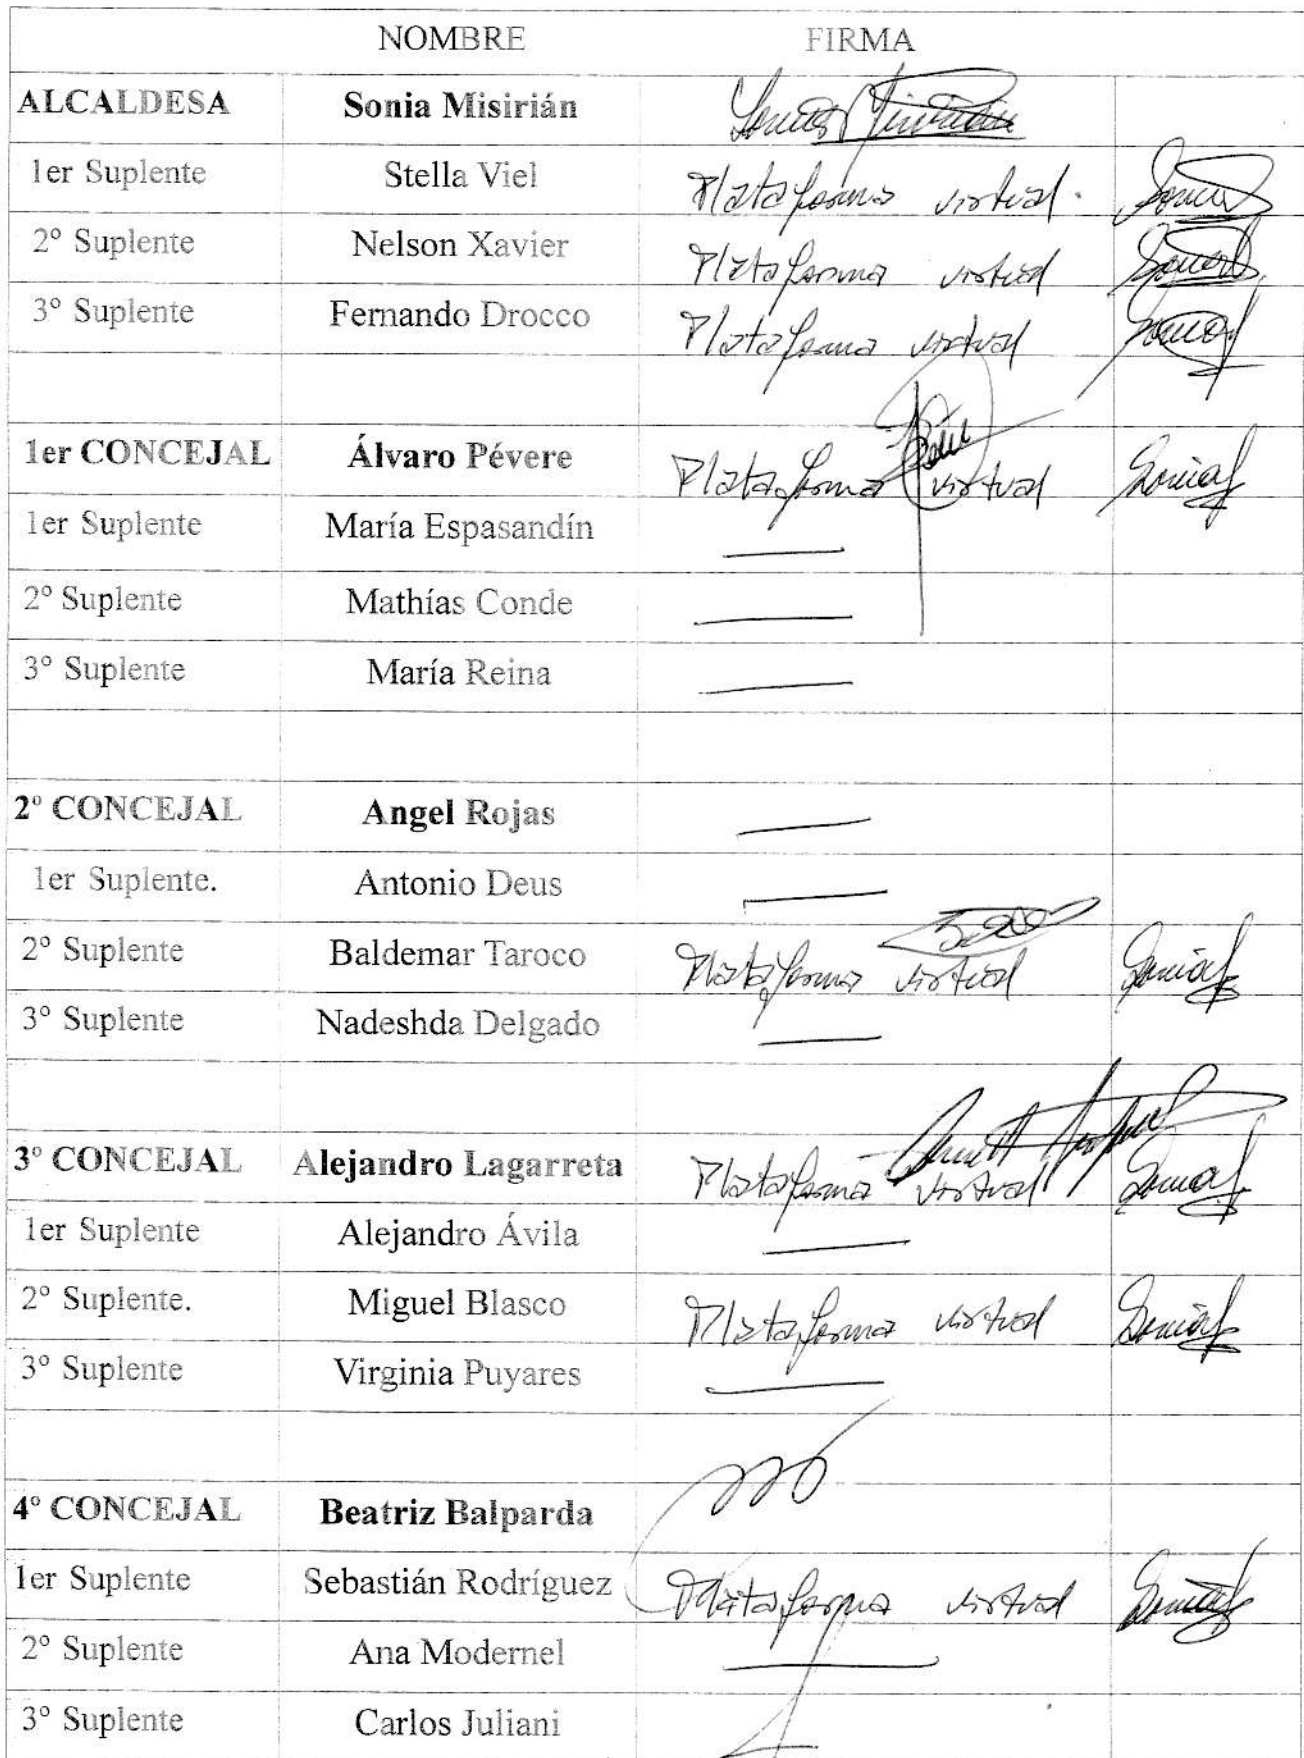 NOMBRE FIRMA
ALCALDESA Sonia Misirián
1er Suplente Stella Viel Plataforma virtual.
2º Suplente Nelson Xavier Plataforma virtual
3º Suplente Fernando Drocco Plataforma virtual
1er CONCEJAL Álvaro Pévere Plataforma virtual
1er Suplente María Espasandín
2º Suplente Mathías Conde
3º Suplente María Reina
2º CONCEJAL Angel Rojas
1er Suplente. Antonio Deus
2º Suplente Baldemar Taroco Plataforma virtual
3º Suplente Nadeshda Delgado
3º CONCEJAL Alejandro Lagarreta Plataforma virtual
1er Suplente Alejandro Ávila
2º Suplente. Miguel Blasco Plataforma virtual
3º Suplente Virginia Puyares
4º CONCEJAL Beatriz Balparda
1er Suplente Sebastián Rodríguez Plataforma virtual
2º Suplente Ana Modernel
3º Suplente Carlos Juliani